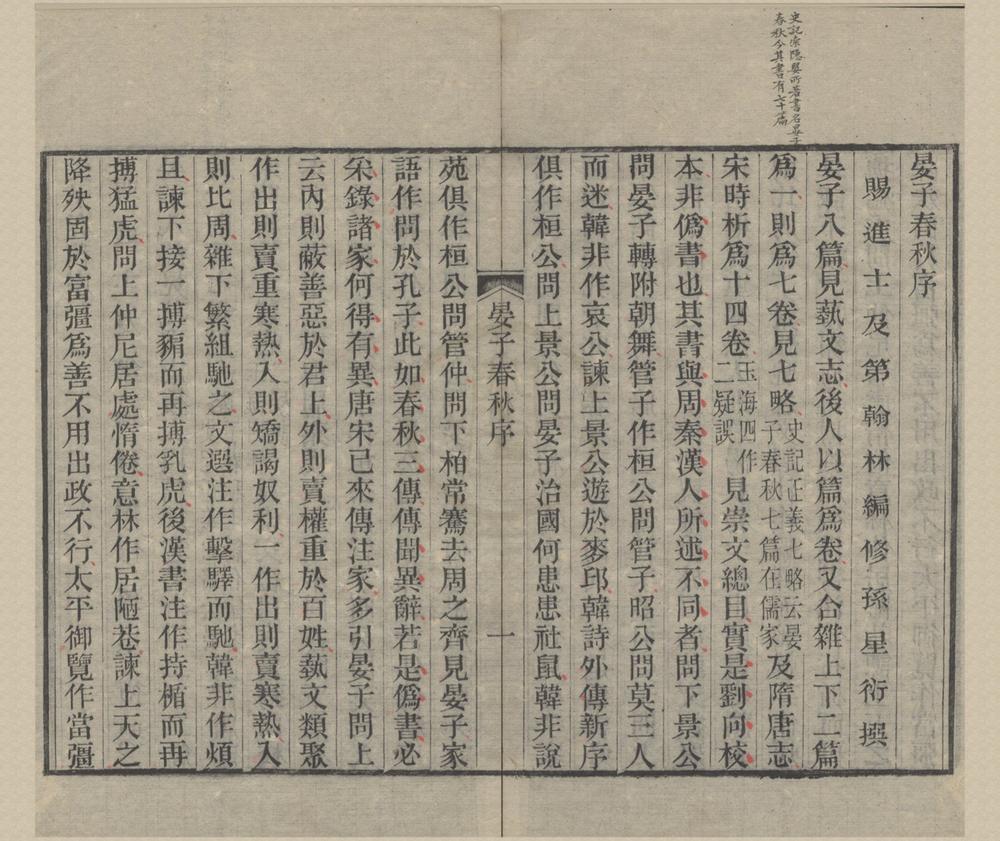 史記索隱嬰所著書名晏子
春秋今其書有七十篇
晏子春秋序
賜進士及第翰林編修孫星衍撰
晏子八篇見蓺文志後人以篇爲卷又合雜上下二篇
爲一則爲七卷見七略史記正義七略云晏子春秋七篇在儒家及隋唐志
宋時析爲十四卷玉海四作二疑誤見崇文總目實是劉向校
本非僞書也其書與周秦漢人所述不同者問下景公
問晏子轉附朝舞管子作桓公問管子昭公問莫三人
而迷韓非作哀公諫上景公遊於麥邱韓詩外傳新序
俱作桓公問上景公問晏子治國何患患社鼠韓非說
晏子春秋序
一
苑俱作桓公問管仲問下柏常騫去周之齊見晏子家
語作問於孔子此如春秋三傳傳聞異辭若是僞書必
采錄諸家何得有異唐宋已來傳注家多引晏子問上
云內則蔽善惡於君上外則賣權重於百姓蓺文類聚
作出則賣重寒熱入則矯謁奴利一作出則賣寒熱入
則比周雜下繁組馳之文選注作擊驛而馳韓非作煩
且諫下接一搏猏而再搏乳虎後漢書注作持楯而再
搏猛虎問上仲尼居處惰倦意林作居陋巷諫上天之
降殃固於富彊爲善不用出政不行太平御覽作當彊